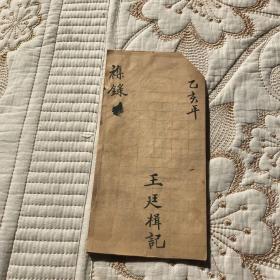 乙亥年
雜錄
王廷楫記